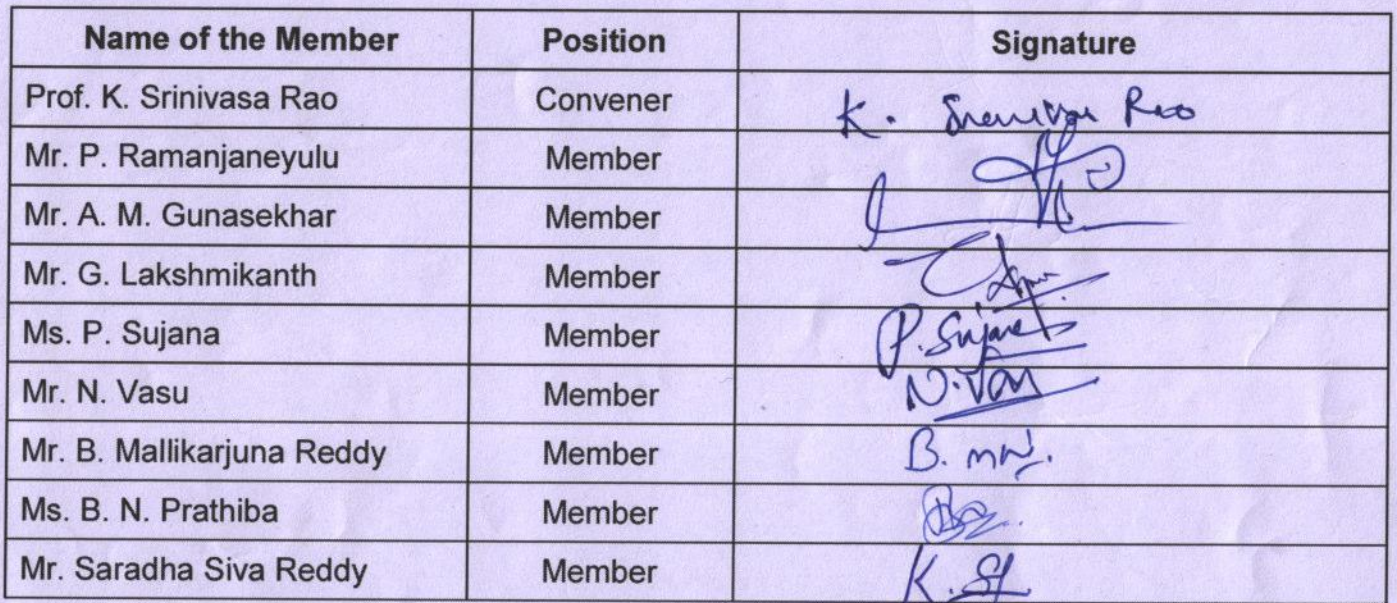 Name of the Member Position Signature
Prof. K. Srinivasa Rao Convener K. Srinivasa Rao
Mr. P. Ramanjaneyulu Member
Mr. A. M. Gunasekhar Member
Mr. G. Lakshmikanth Member
Ms. P. Sujana Member P. Sujana
Mr. N. Vasu Member N. Vasu
Mr. B. Mallikarjuna Reddy Member B.
Ms. B. N. Prathiba Member
Mr. Saradha Siva Reddy Member K.